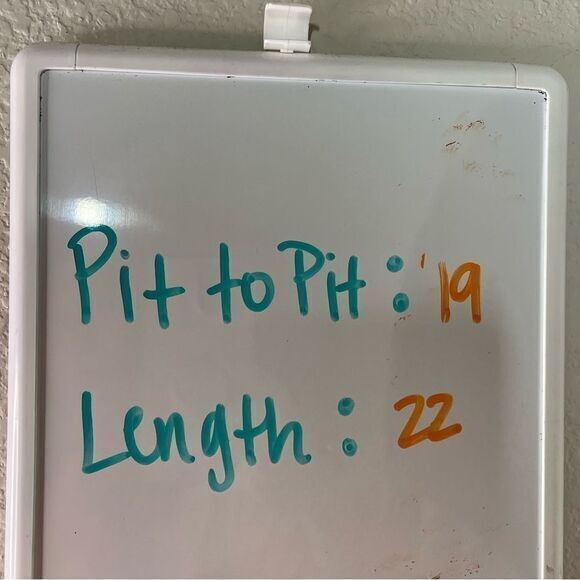 Pit to Pit: '19
Length: 22